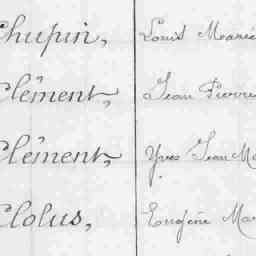 Chupin, Louis Marie
Clément, Jean Pierre
Clément, Yves Jean Ma
Clolus, Eugène Mar